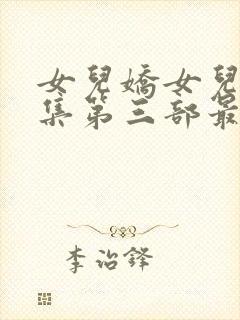 女兒嬌女兒
集第三部最
李治鋒